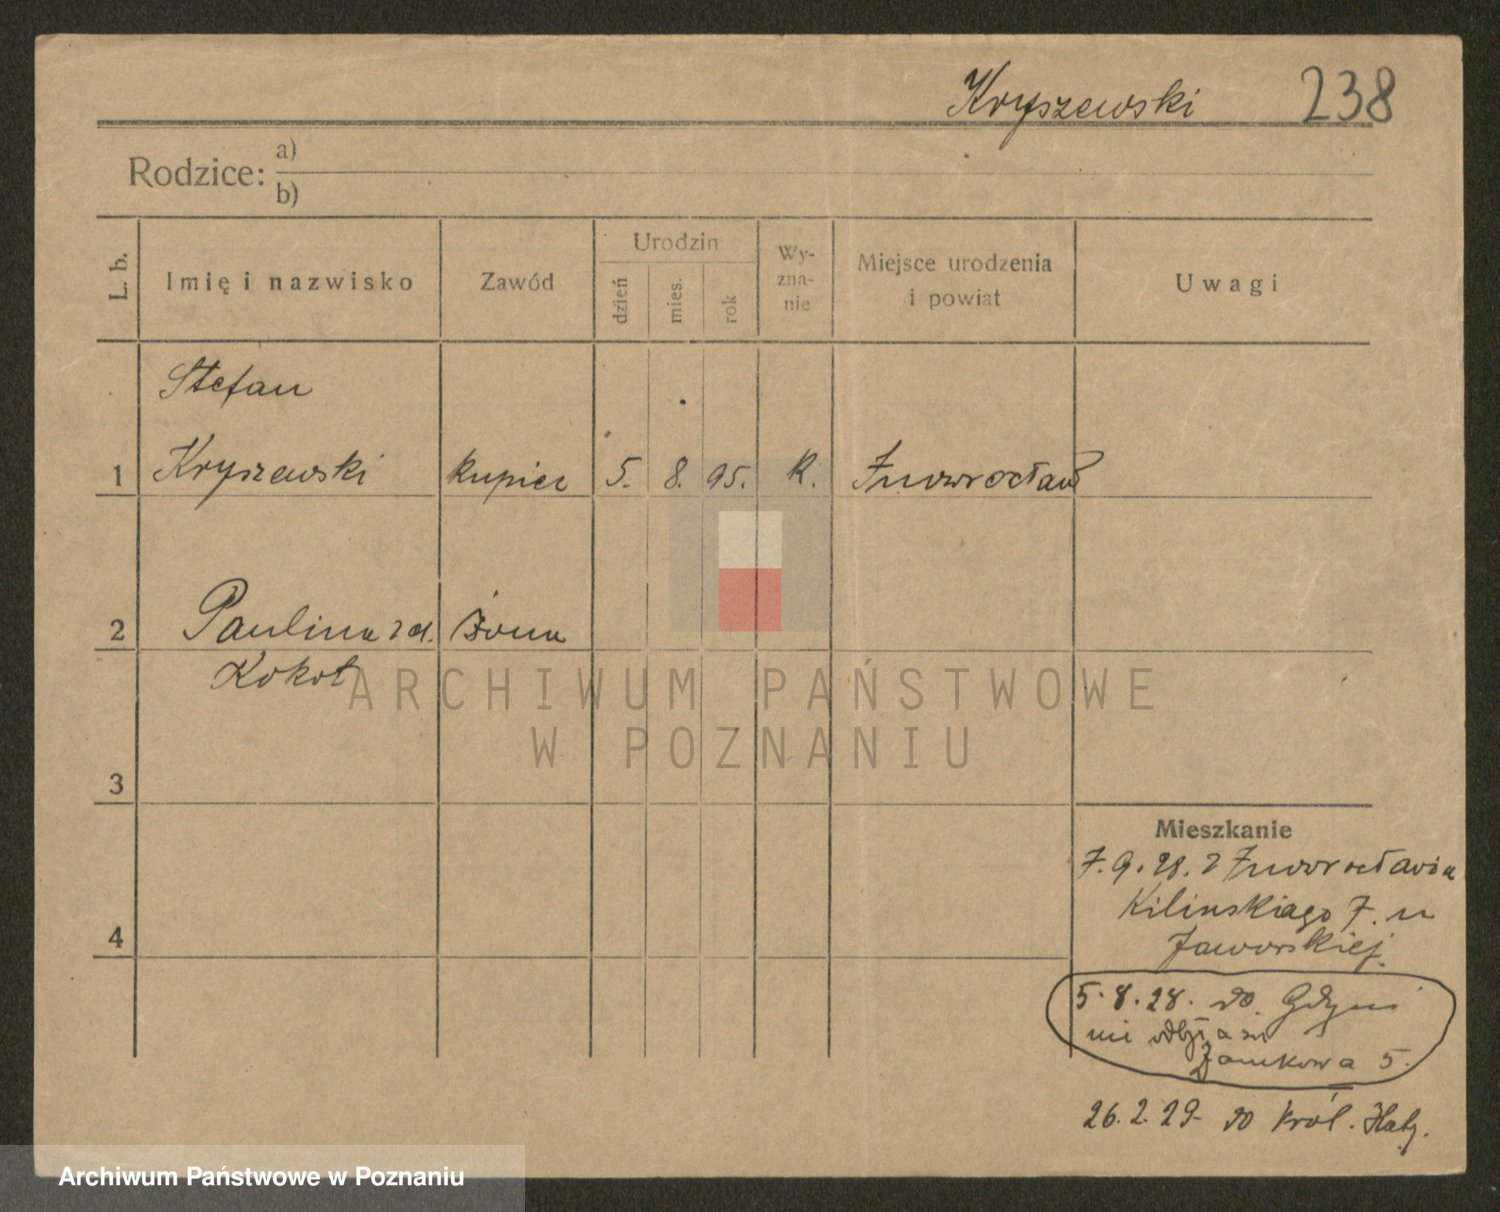 Kryszewski 238
Rodzice: a)
b)
L. b.
Imię i nazwisko
Zawód
Urodzin
dzień
mies.
rok
Wy-
zna-
nie
Miejsce urodzenia
i powiat
Uwagi
Stefan
1 Kryszewski kupiec 5. 8. 95. K. Inowrocław
2 Paulina z d. żona
Kokot
3
4
Mieszkanie
7. 9. 28. z Inowrocławia
Kilinskiago 7. u
Jaworskiej.
5. 8. 28. do Gdyni
Zamkowa 5.
26. 2. 29. do Król. Hutj.
ARCHIWUM PAŃSTWOWE
W POZNANIU
Archiwum Państwowe w Poznaniu